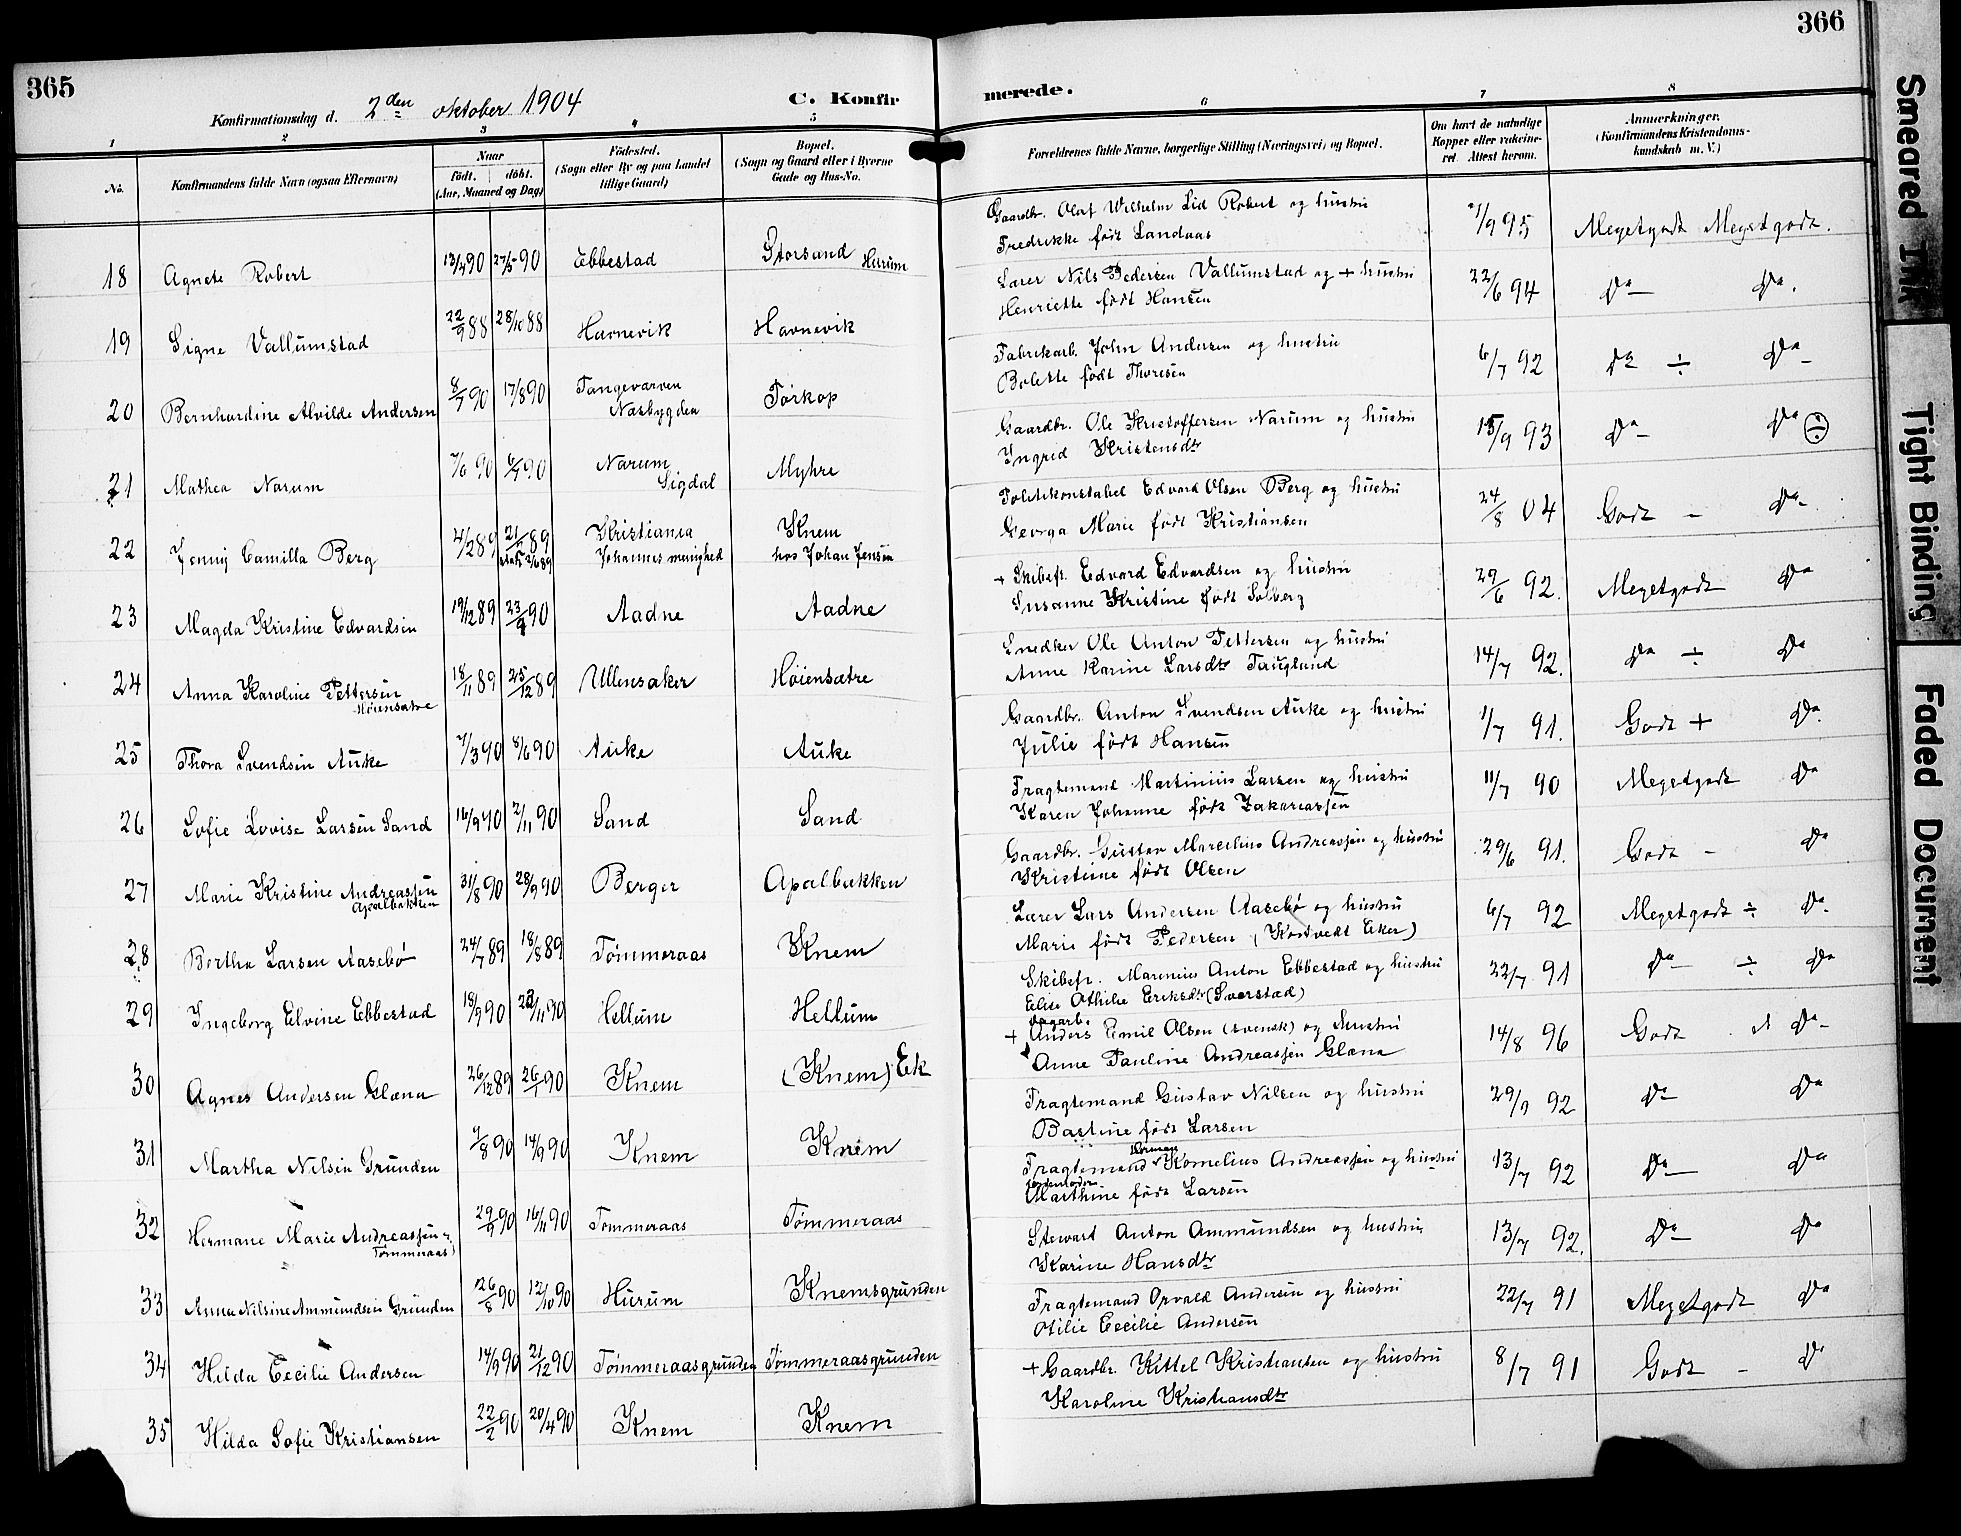 365
366
Konfirmationsdag d. 2den oktober 1904
C. Konfir
merede.
1 2 3 4 5
6 7 8
No. Konfirmandens fulde Navn (ogsaa Efternavn)
Naar
födt. döbt.
(Aar, Maaned og Dag)
Födested.
(Sogn eller By og paa Landet
tillige Gaard)
Bopæl.
(Sogn og Gaard eller i Byerne
Gade og Hus-No.
Forældrenes fulde Navne, borgerlige Stilling (Næringsvei) og Bopæl.
Om havt de naturlige
Kopper eller vakcine-
ret. Attest herom.
Anmærkninger.
(Konfirmandens Kristendoms-
kundskab m. V.)
18 Agnete Robert 90 27/5 90 Ebbestad Storsand Hurum
Gaardbr. Olaf Wilhelm Lid Robert og hustru
Fredrikke født Landaas
/9 95 Megetgodt Megetgodt.
19 Signe Vallumstad 22/9 88 28/10 88 Havnevik Havnevik
Lærer Nils Pedersen Vallumstad og + hustru
Henriette født Hansen
22/6 94 Do Do.
20 Bernhardine Alvilde Andersen 8/7 90 17/8 90 Tangevarven
Næsbygden Torkop
Fabrikarb. John Andersen og hustru
Bolette født Thoresen
6/7 92 Do ÷ Do
21 Mathea Narum 7/6 90 6/7 90 Narum
Sigdal Myhre
Gaardbr. Ole Kristoffersen Narum og hustru
Ingrid Kristensdtr
15/9 93 Do Do ÷
22 Jenny Camilla Berg 4/2 89 89 Kristiania Knem
Johannes menighed hos Johan Jensen
Politikonstabel Edvard Olsen Berg og hustru
Georga Marie født Kristiansen
24/8 04 Godt - Do
23 Magda Kristine Edvardsen 19/12 89 90 Aadne Aadne
+ Skibsf. Edvard Edvardsen og hustru
Susanne Kristine født Solberg
29/6 92. Megetgodt Do
24 Anna Karoline Pettersen
Høiensætre 18/11 89 25/12 89 Ullensaker Høiensætre
Snedker Ole Anton Pettersen og hustru
Anne Karine Larsdtr Fauglund
14/7 92. Do ÷ Do
25 Thora Svendsen Auke 7/3 90 8/6 90 Auke Auke
Gaardbr. Anton Svendsen Auke og hustru
Julie født Hansen
1/7 91. Godt + Do
26 Sofie Lovise Larsen Sand 16/9 90 2/11 90 Sand Sand
Fragtemand Martinius Larsen og hustru
Karen Johanne født Zakariassen
11/7 90 Megetgodt Do
27 Marie Kristine Andreassen
Apalbakken 31/8 90 28/9 90 Berger Apalbakken
Gaardbr. Gustav Marcelius Andreassen og hustru
Kristine født Olsen
29/6 91. Godt - Do
28 Bertha Larsen Aasebø 24/7 89 18/8 89 Tømmeraas Knem
Lærer Lars Andersen Aasebø og hustru
Marie født Pedersen (Kostvedt Eker)
6/7 92 Megetgodt ÷ Do
29 Ingeborg Elvine Ebbestad 18/9 90 23/11 90 Hellum Hellum
Skibsfr. Marenius Anton Ebbestad og hustru
Elise Othilie Eriksdtr (Sverstad)
22/7 91 Do ÷ Do
30 Agnes Andersen Glæna 26/12 89 26/1 90 Knem (Knem) Ek
Dagarb.
+ Anders Emil Olsen (svensk) og hustru
Anne Pauline Andreassen Glæna
14/8 96 Godt Do
31 Martha Nilsen Grunden 7/8 90 14/9 90 Knem Knem
Fragtemand Gustav Nilsen og hustru
Bastine født Larsen
29/9 92 Do Do
32 Hermane Marie Andreassen
Tømmeraas) 29/9 90 16/11 90 Tømmeraas Tømmeraas
Herman
Fragtemand Kornelius Andreassen og hustru
Marthine født Larsen
13/7 92 Do Do
33 Anna Nilsine Ammundsen Grunden 26/8 90 12/10 90 Hurum Knemsgrunden
Stewart Anton Ammundsen og hustru
Karine Hansdtr
13/7 92. Do Do
34 Hilda Cecilie Andersen 14/9 90 21/12 90 Tømmeraasgrunden Tømmeraasgrunden
Fragtemand Orvald Andersen og hustru
Otilie Cecilie Andersen
22/7 91 Megetgodt Do
35 Hilda Sofie Kristiansen 22/2 90 20/4 90 Knem Knem
+ Gaardbr. Kittel Kristiansen og hustru
Karoline Kristiansdtr
8/7 91 Godt - Do
Smeared Ink
Tight Binding
Faded Document